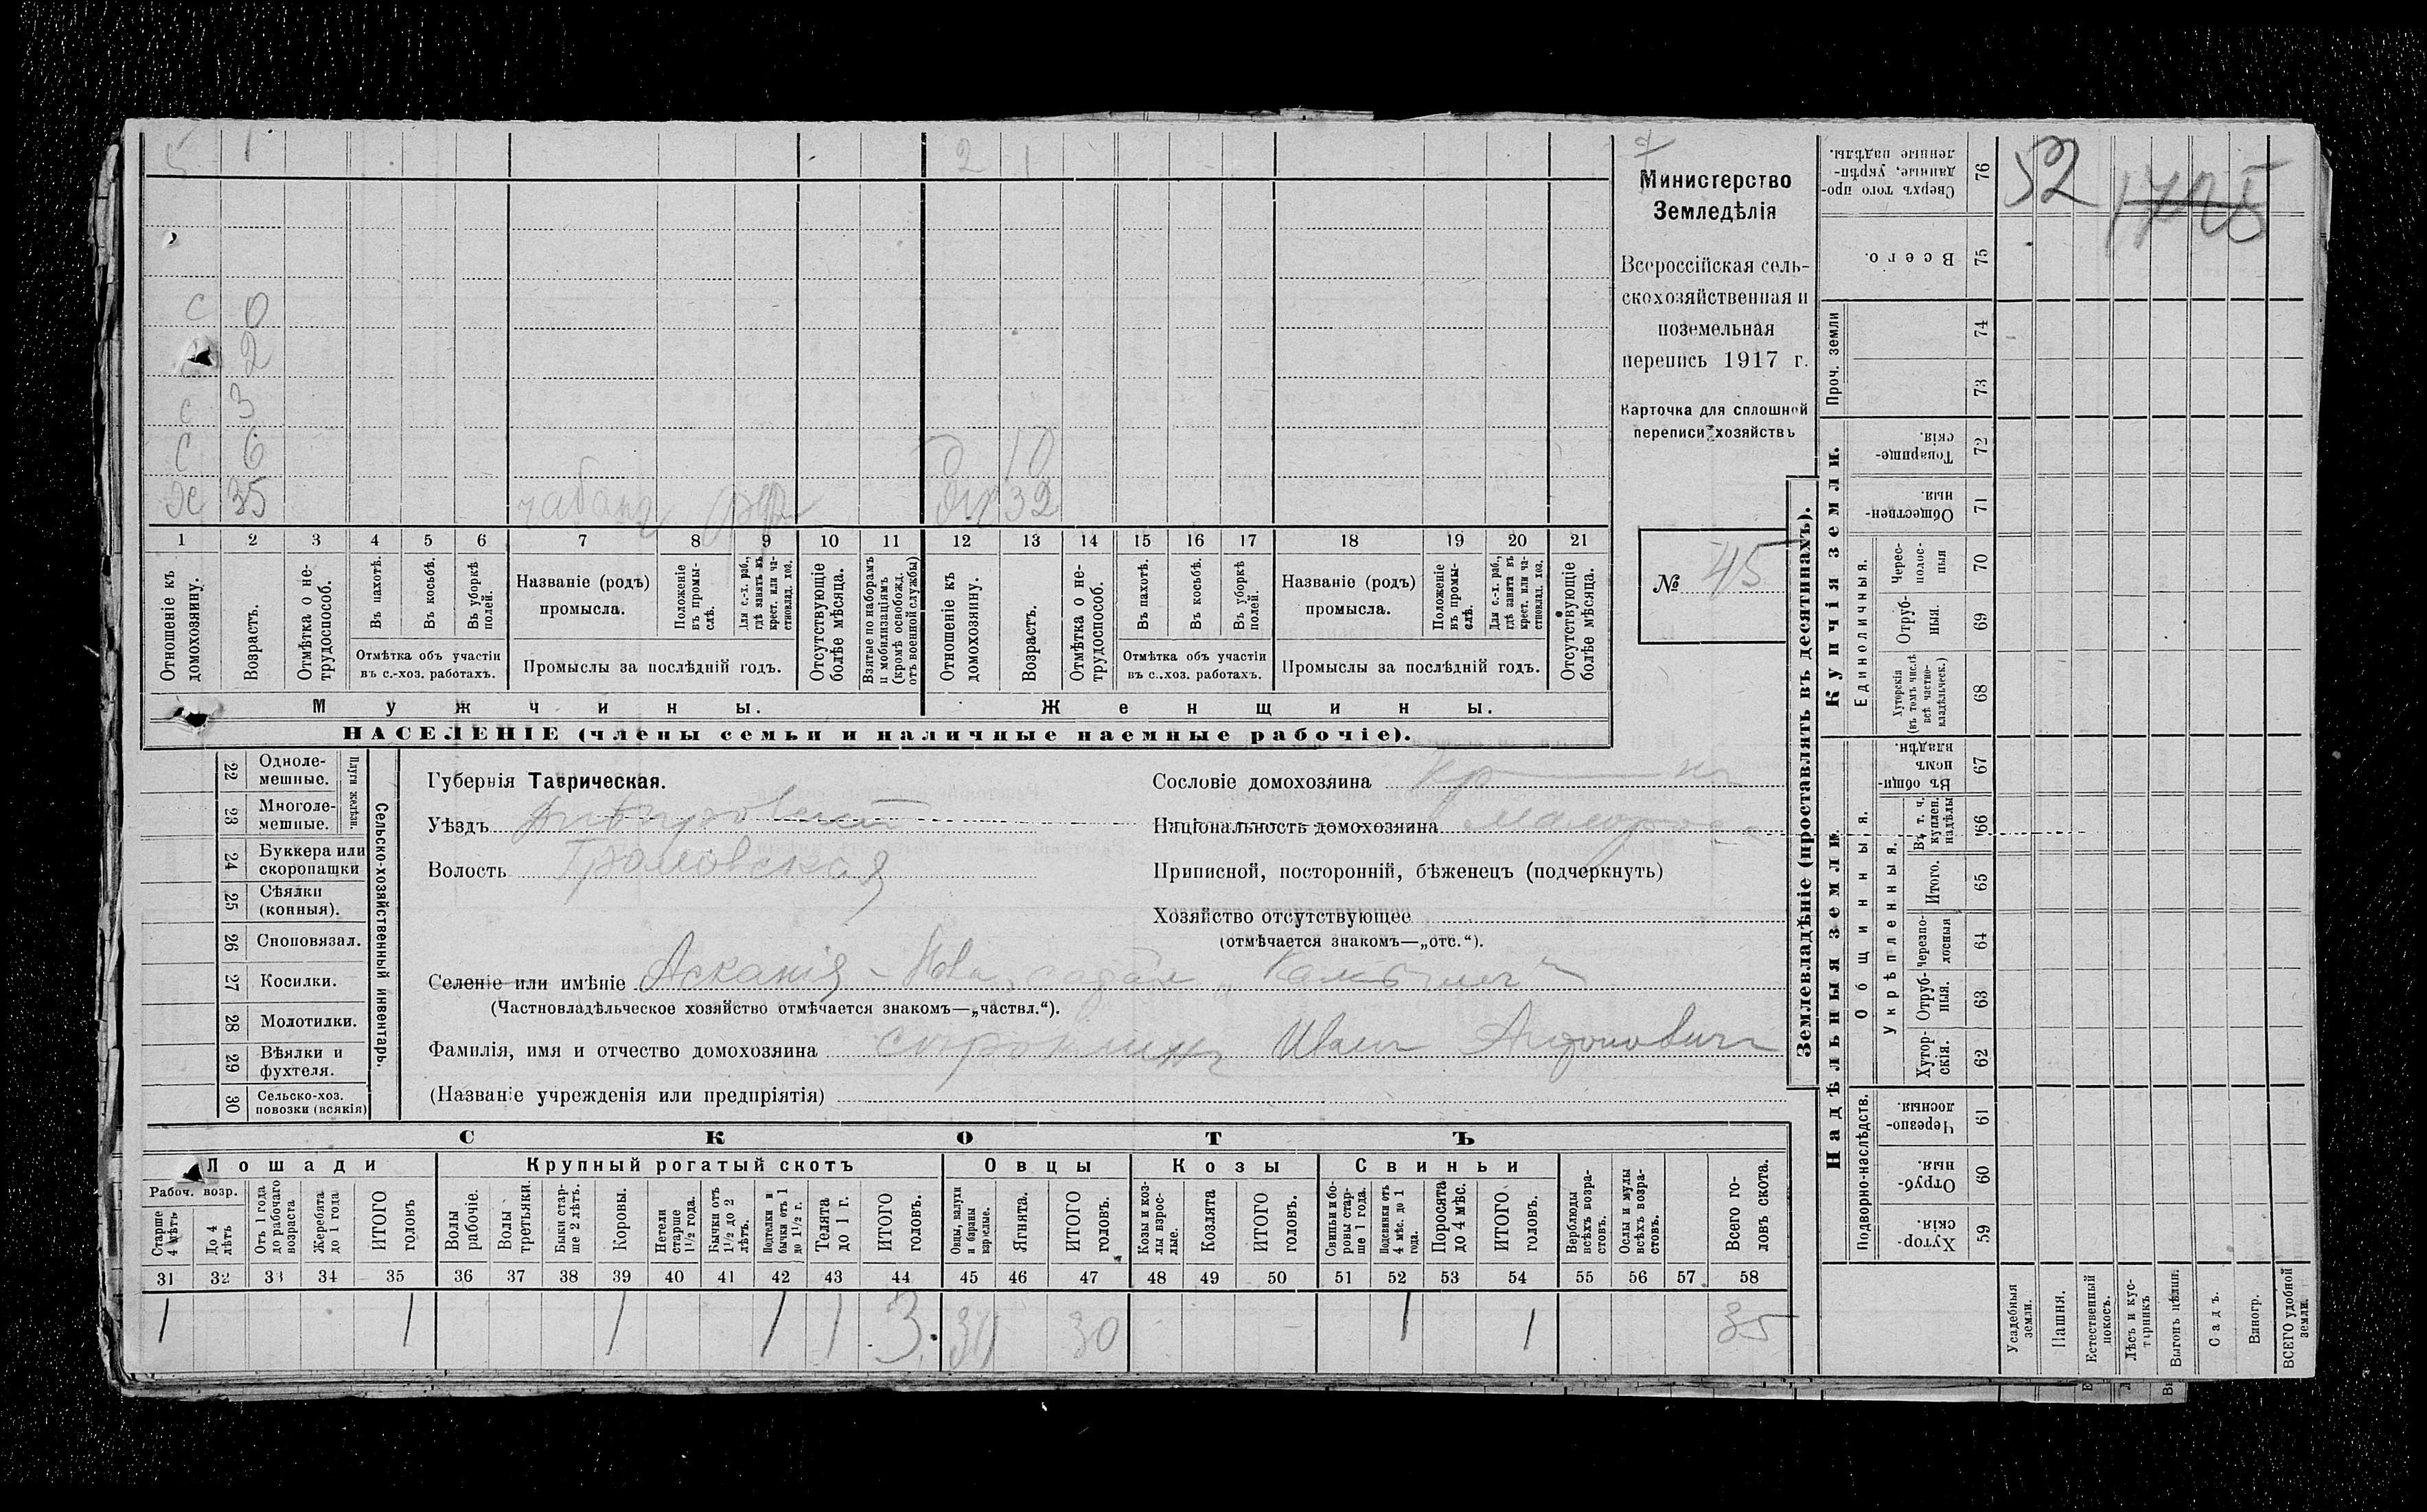 5 1 2 1
с 0
2
с 3
с 6
10
35 чабанъ 32
1 2 3 4 5 6 7 8 9 10 11 12 13 14 15 16 17 18 19 20 21
Отношеніе къ домохозяину.
Возрастъ.
Отмѣтка о нетрудоспособ.
Въ пахотѣ.
Въ косьбѣ.
Въ уборкѣ полей.
Отмѣтка объ участіи
въ с.-хоз. работахъ.
Названіе (родъ)
промысла.
Положеніе въ промыслѣ.
Для с.-х. раб., гдѣ занятъ въ крест. или частновлад. хоз.
Промыслы за послѣдній годъ.
Отсутствующіе болѣе мѣсяца.
Взятые по наборамъ и мобилизаціямъ (кромѣ освобожд. отъ военной службы)
Отношеніе къ домохозяину.
Возрастъ.
Отмѣтка о нетрудоспособ.
Въ пахотѣ.
Въ косьбѣ.
Въ уборкѣ полей.
Отмѣтка объ участіи
въ с..хоз. работахъ.
Названіе (родъ)
промысла.
Положеніе въ промыслѣ.
Для с.-х. раб., гдѣ занята въ крест. или частновлад. хоз.
Промыслы за послѣдній годъ.
Отсутствующіе болѣе мѣсяца.
Мужчины. Женщины.
НАСЕЛЕНІЕ (члены семьи и наличные наемные рабочіе).
Министерство
Земледѣлія
Всероссійская сель-
скохозяйственная и
поземельная
перепись 1917 г.
Карточка для сплошной
переписи хозяйствъ
№ 45
22 Одноле-
мешные.
23 Многоле-
мешные.
Плуги желѣзн.
24 Буккера или
скоропашки
25 Сѣялки
(конныя).
26 Сноповязал.
27 Косилки.
28 Молотилки.
29 Вѣялки и
фухтеля.
30 Сельско-хоз.
повозки (всякія)
Сельско-хозяйственный инвентарь.
Губернія Таврическая.
Уѣздъ Днѣпровскій
Волость Громовская
Сословіе домохозяина Кр-нъ
Національность домохозяина Малоросс
Приписной, посторонній, бѣженецъ (подчеркнуть)
Хозяйство отсутствующее
(отмѣчается знакомъ—„отс.“).
Селеніе или имѣніе Асканія-Нова,
(Частновладѣльческое хозяйство отмѣчается знакомъ—„частвл.“).
Фамилія, имя и отчество домохозяина Иванъ
(Названіе учрежденія или предпріятія)
СКОТЪ
Лошади Крупный рогатый скотъ Овцы Козы Свиньи
Рабоч. возр.
Старше 4 лѣтъ
До 4 лѣтъ
Отъ 1 года до рабочаго возраста
Жеребята до 1 года
ИТОГО головъ
Волы рабочіе.
Волы третьяки.
Быки старше 2 лѣтъ.
Коровы.
Нетели старше 1½ года.
Бычки отъ 1½ до 2 лѣтъ.
Подтелки и бычки отъ 1 до 1½ г.
Телята до 1 г.
ИТОГО головъ.
Овцы, валухи и бараны взрослые.
Ягнята.
ИТОГО головъ.
Козы и козлы взрослые.
Козлята
ИТОГО головъ.
Свиньи и боровы старше 1 года.
Подсвинки отъ 4 мѣс. до 1 года.
Поросята до 4 мѣс.
ИТОГО головъ.
Верблюды всѣхъ возрастовъ.
Ослы и мулы всѣхъ возрастовъ.
Всего головъ скота.
31 32 33 34 35 36 37 38 39 40 41 42 43 44 45 46 47 48 49 50 51 52 53 54 55 56 57 58
1 1 1 1 1 3. 30 30 1 1 35
Землевладѣніе (проставлять въ десятинахъ).
52 1725
Сверхъ того проданные, укрѣпленные надѣлы. 76
Всего. 75
Проч. земли 74
73
Купчія земли.
Товарищескія. 72
Общественныя 71
Единоличныя.
Черезполосныя 70
Отрубныя. 69
Хуторскія (въ томъ числѣ всѣ частновладѣльческ.) 68
Надѣльныя земли
Общинныя.
Въ общинномъ владѣн. 67
Укрѣпленныя.
Въ т. ч. куплен. надѣлы 66
Итого. 65
Черезполосныя 64
Отрубныя. 63
Хуторскія. 62
Подворно-наслѣдств.
Черезполосныя. 61
Отрубныя. 60
Хуторскія. 59
Усадебныя земли.
Пашня.
Естественный покосъ.
Лѣсъ и кустарникъ
Выгонъ цѣлин.
Садъ.
Виногр.
ВСЕГО удобной земли.